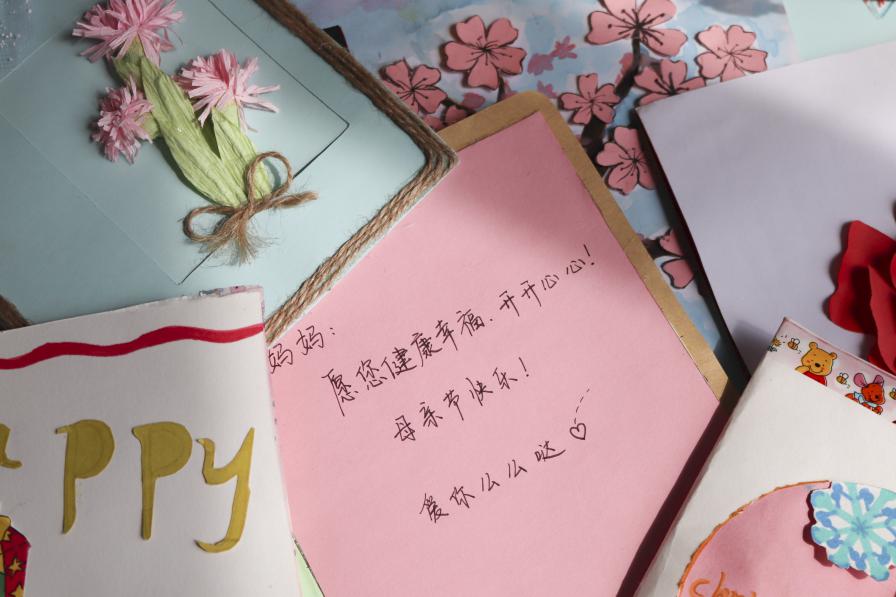 妈妈：
愿您健康幸福、开开心心！
母亲节快乐！
爱你么么哒♡
appy